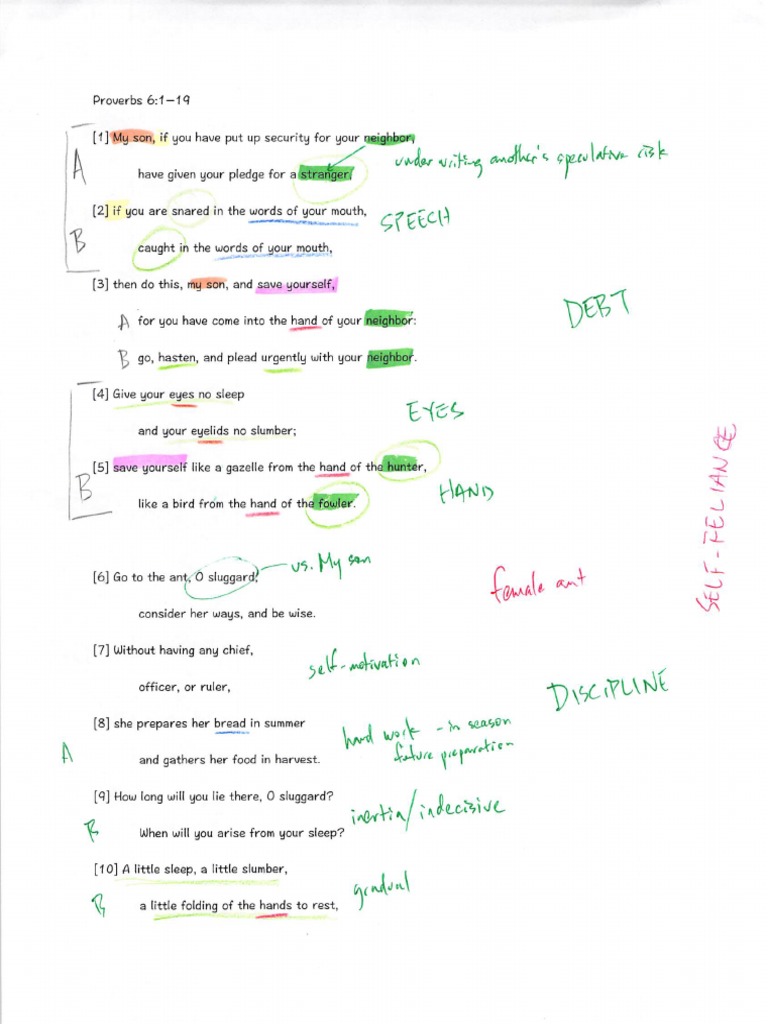 Proverbs 6:1–19
[1] My son, if you have put up security for your neighbor,
have given your pledge for a stranger,
under writing another's speculative risk
A
[2] if you are snared in the words of your mouth,
SPEECH
B
caught in the words of your mouth,
[3] then do this, my son, and save yourself,
DEBT
A for you have come into the hand of your neighbor:
B go, hasten, and plead urgently with your neighbor.
[4] Give your eyes no sleep
EYES
and your eyelids no slumber;
[5] save yourself like a gazelle from the hand of the hunter,
B
HAND
like a bird from the hand of the fowler.
SELF-RELIANCE
[6] Go to the ant, O sluggard;
vs. My son
female ant
consider her ways, and be wise.
[7] Without having any chief,
self-motivation
officer, or ruler,
DISCIPLINE
[8] she prepares her bread in summer
hard work - in season
future preparation
A
and gathers her food in harvest.
[9] How long will you lie there, O sluggard?
inertia/indecisive
B When will you arise from your sleep?
[10] A little sleep, a little slumber,
gradual
B a little folding of the hands to rest,